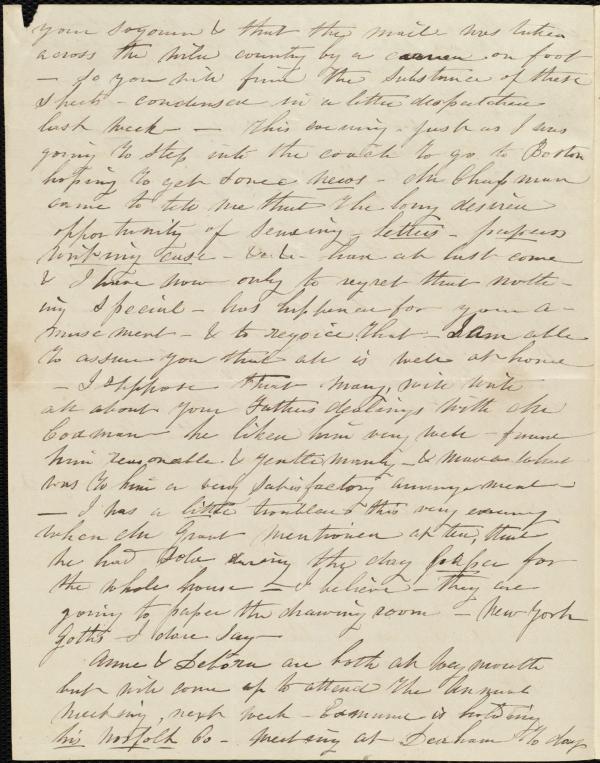 your sojourn & that the mail was taken
across the wild country by a on foot
— so you will find the substance of these
sheets - condensed in a letter despatched
last week — This evening - just as I was
going to step into the coach to go to Boston
hoping to get some news - Mr Chapman
came to tell me that the long desired
opportunity of sending - letters - papers
writing case - &c &c - had at last come
& I have now only to regret that noth-
ing special - has happened for your a-
musement - & to rejoice that - I am able
to assure you that all is well at home
- I suppose that Mary, will write
all about your Fathers dealings with Mr
Codman he liked him very well - found
him reasonable & gentlemanly - & made what
was to him a very satisfactory arrangement -
— I was a little troubled this very evening
when Mr Grant mentioned at tea, that
he had sold during the day paper for
the whole house — & I believe - they are
going to paper the drawing room - New York
Goths I dare say -
Anne & Debora are both at Weymouth
but will come up to attend the Annual
meeting, next week - Edmund is holding
his Norfolk Co - meeting at Dedham to day